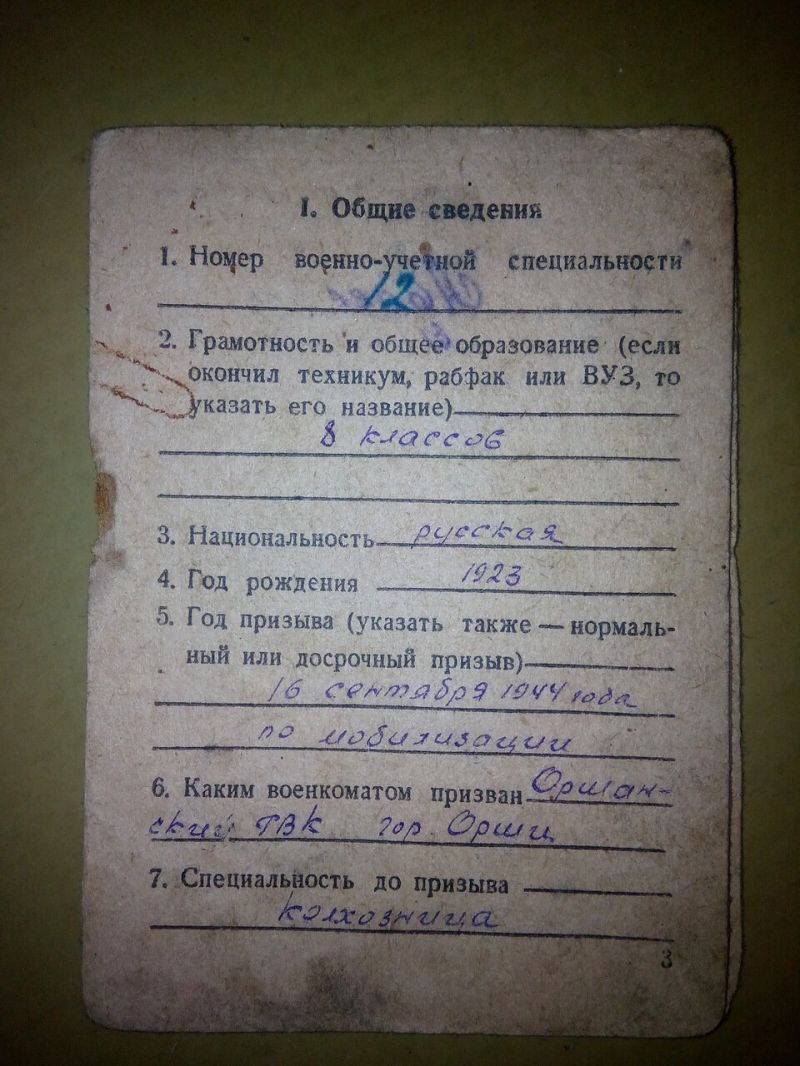 I. Общие сведения
1. Номер военно-учетной специальности
12
2. Грамотность и общее образование (если
окончил техникум, рабфак или ВУЗ, то
указать его название)
8 классов
3. Национальность русская
4. Год рождения 1923
5. Год призыва (указать также — нормаль-
ный или досрочный призыв)
16 сентября 1944 года
по мобилизации
6. Каким военкоматом призван Оршан-
ский ГВК гор. Орши
7. Специальность до призыва
колхозница
3